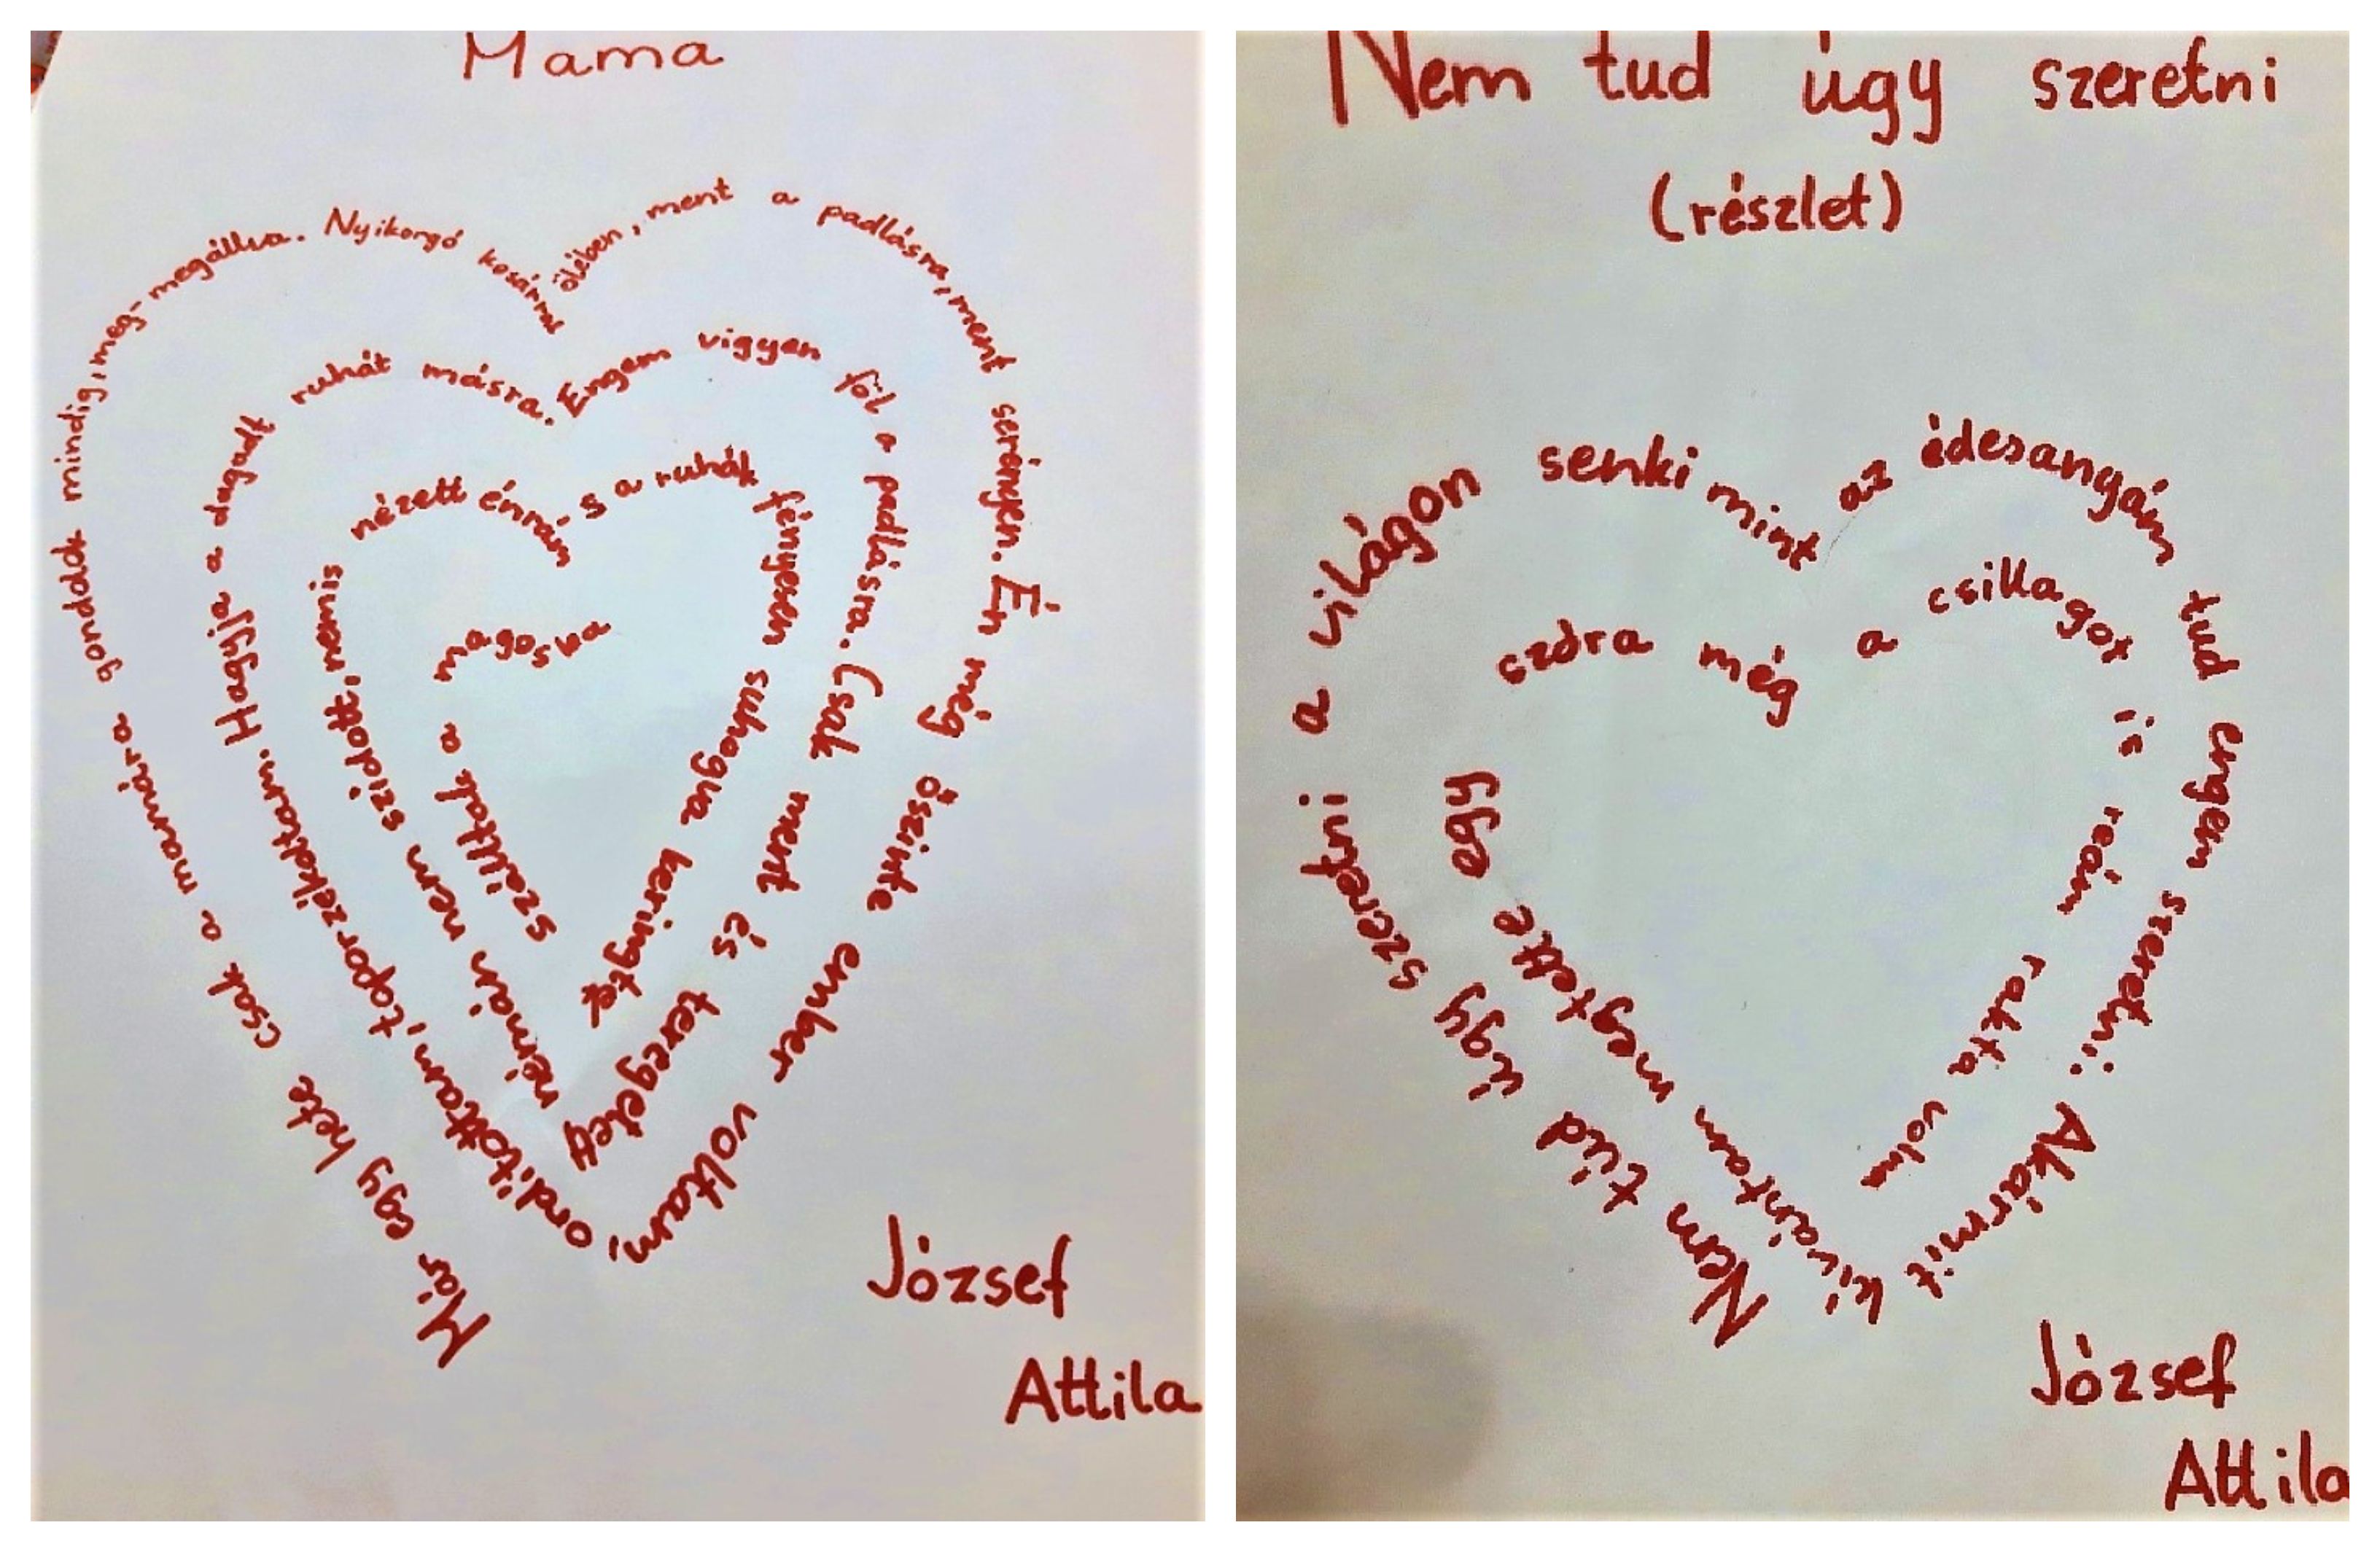 Mama
Már egy hete csak a mamára gondolok mindig, meg-megállva. Nyikorgó kosárral ölében, ment a padlásra, ment serényen. Én még őszinte ember voltam,
ordítottam, toporzékoltam. Hagyja a dagadt ruhát másra. Engem vigyen föl a padlásra. Csak ment és teregetett
némán nem szidott, nem is nézett énrám s a ruhák fényesen suhogva keringtek
szálltak a magosba
József
Attila
Nem tud úgy szeretni
(részlet)
Nem tud úgy szeretni a világon senki mint az édesangyám tud engem szeretni: Akármit
kívántam megtette egy szóra még a csillagot is reám rakta volna
József
Attila